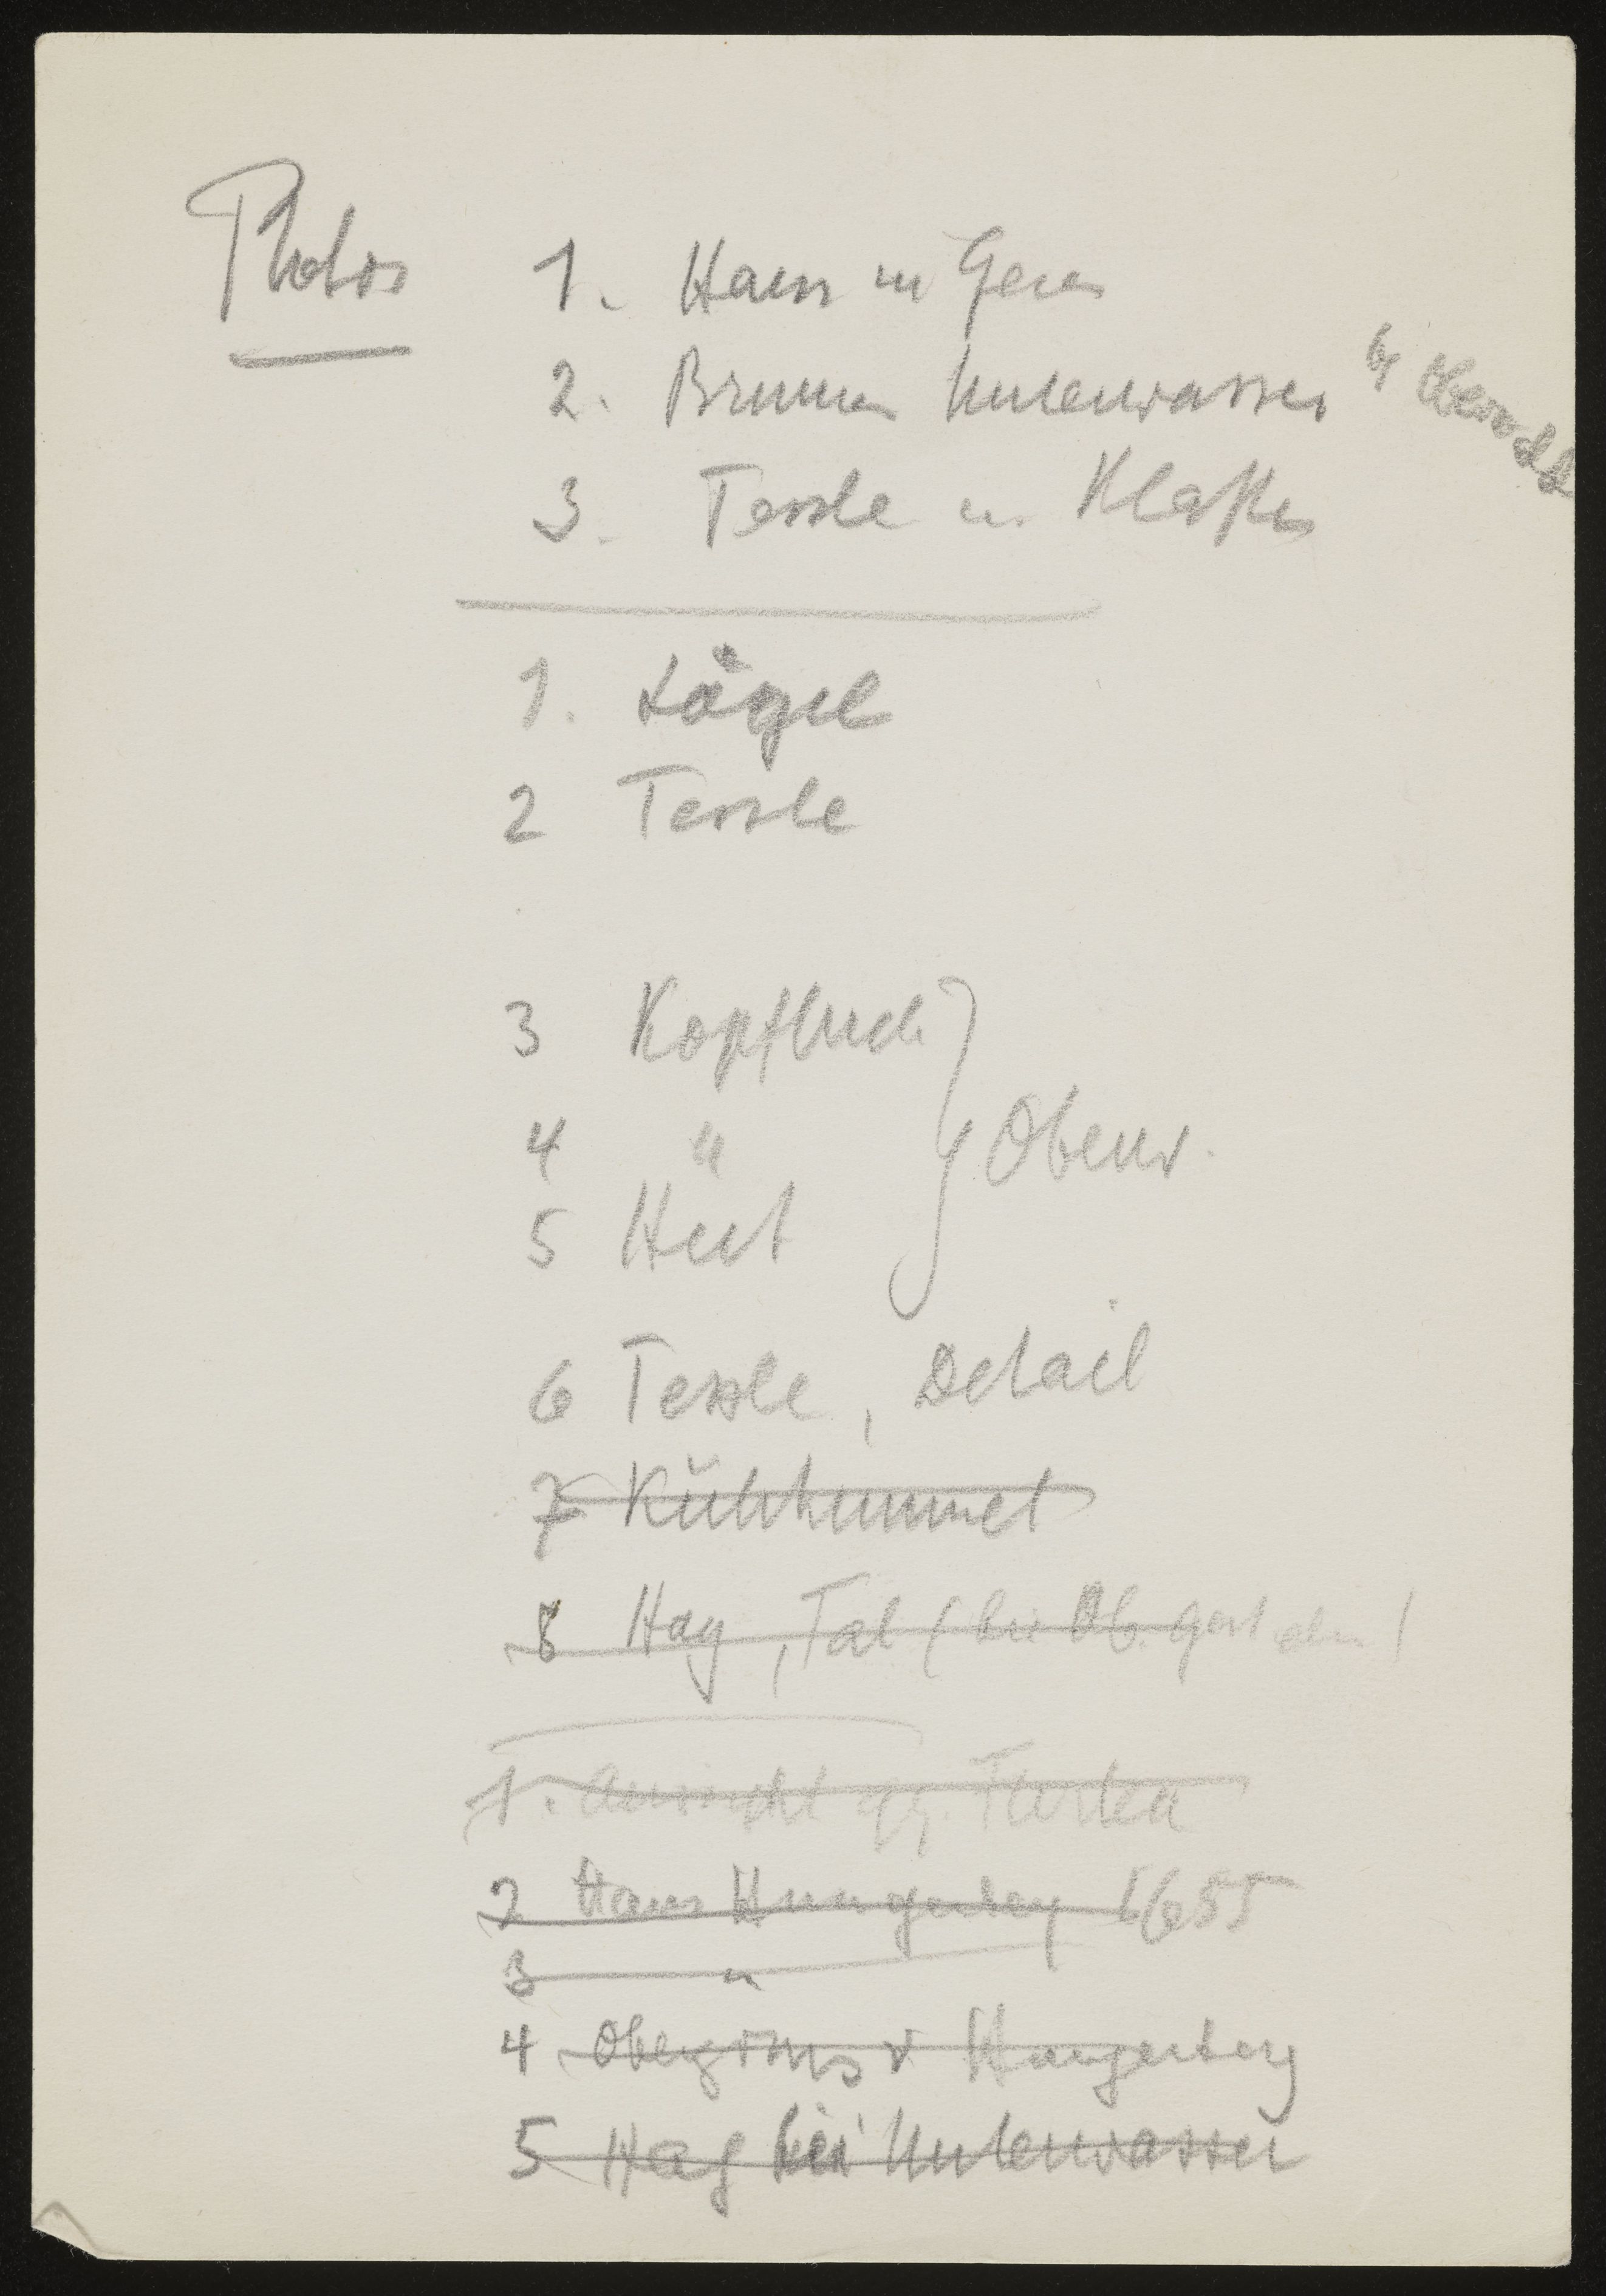 Photos
1. Haus in Geren
2. Brunnen Unterwasser b/ Oberwald
3. Tessle u.
1. Lägel
2 Tessle
3 Kopftuch
4 "
5 Hut
Oberw.
6 Tessle, Detail
7 Kühkummet
8 Hag, Tal (bei Ob. gesteln)
1. Aussicht gg. Furka
2 Haus Hungerberg 1655
3 "
4 Obergoms v Hungerberg
5 Hag bei Unterwasser